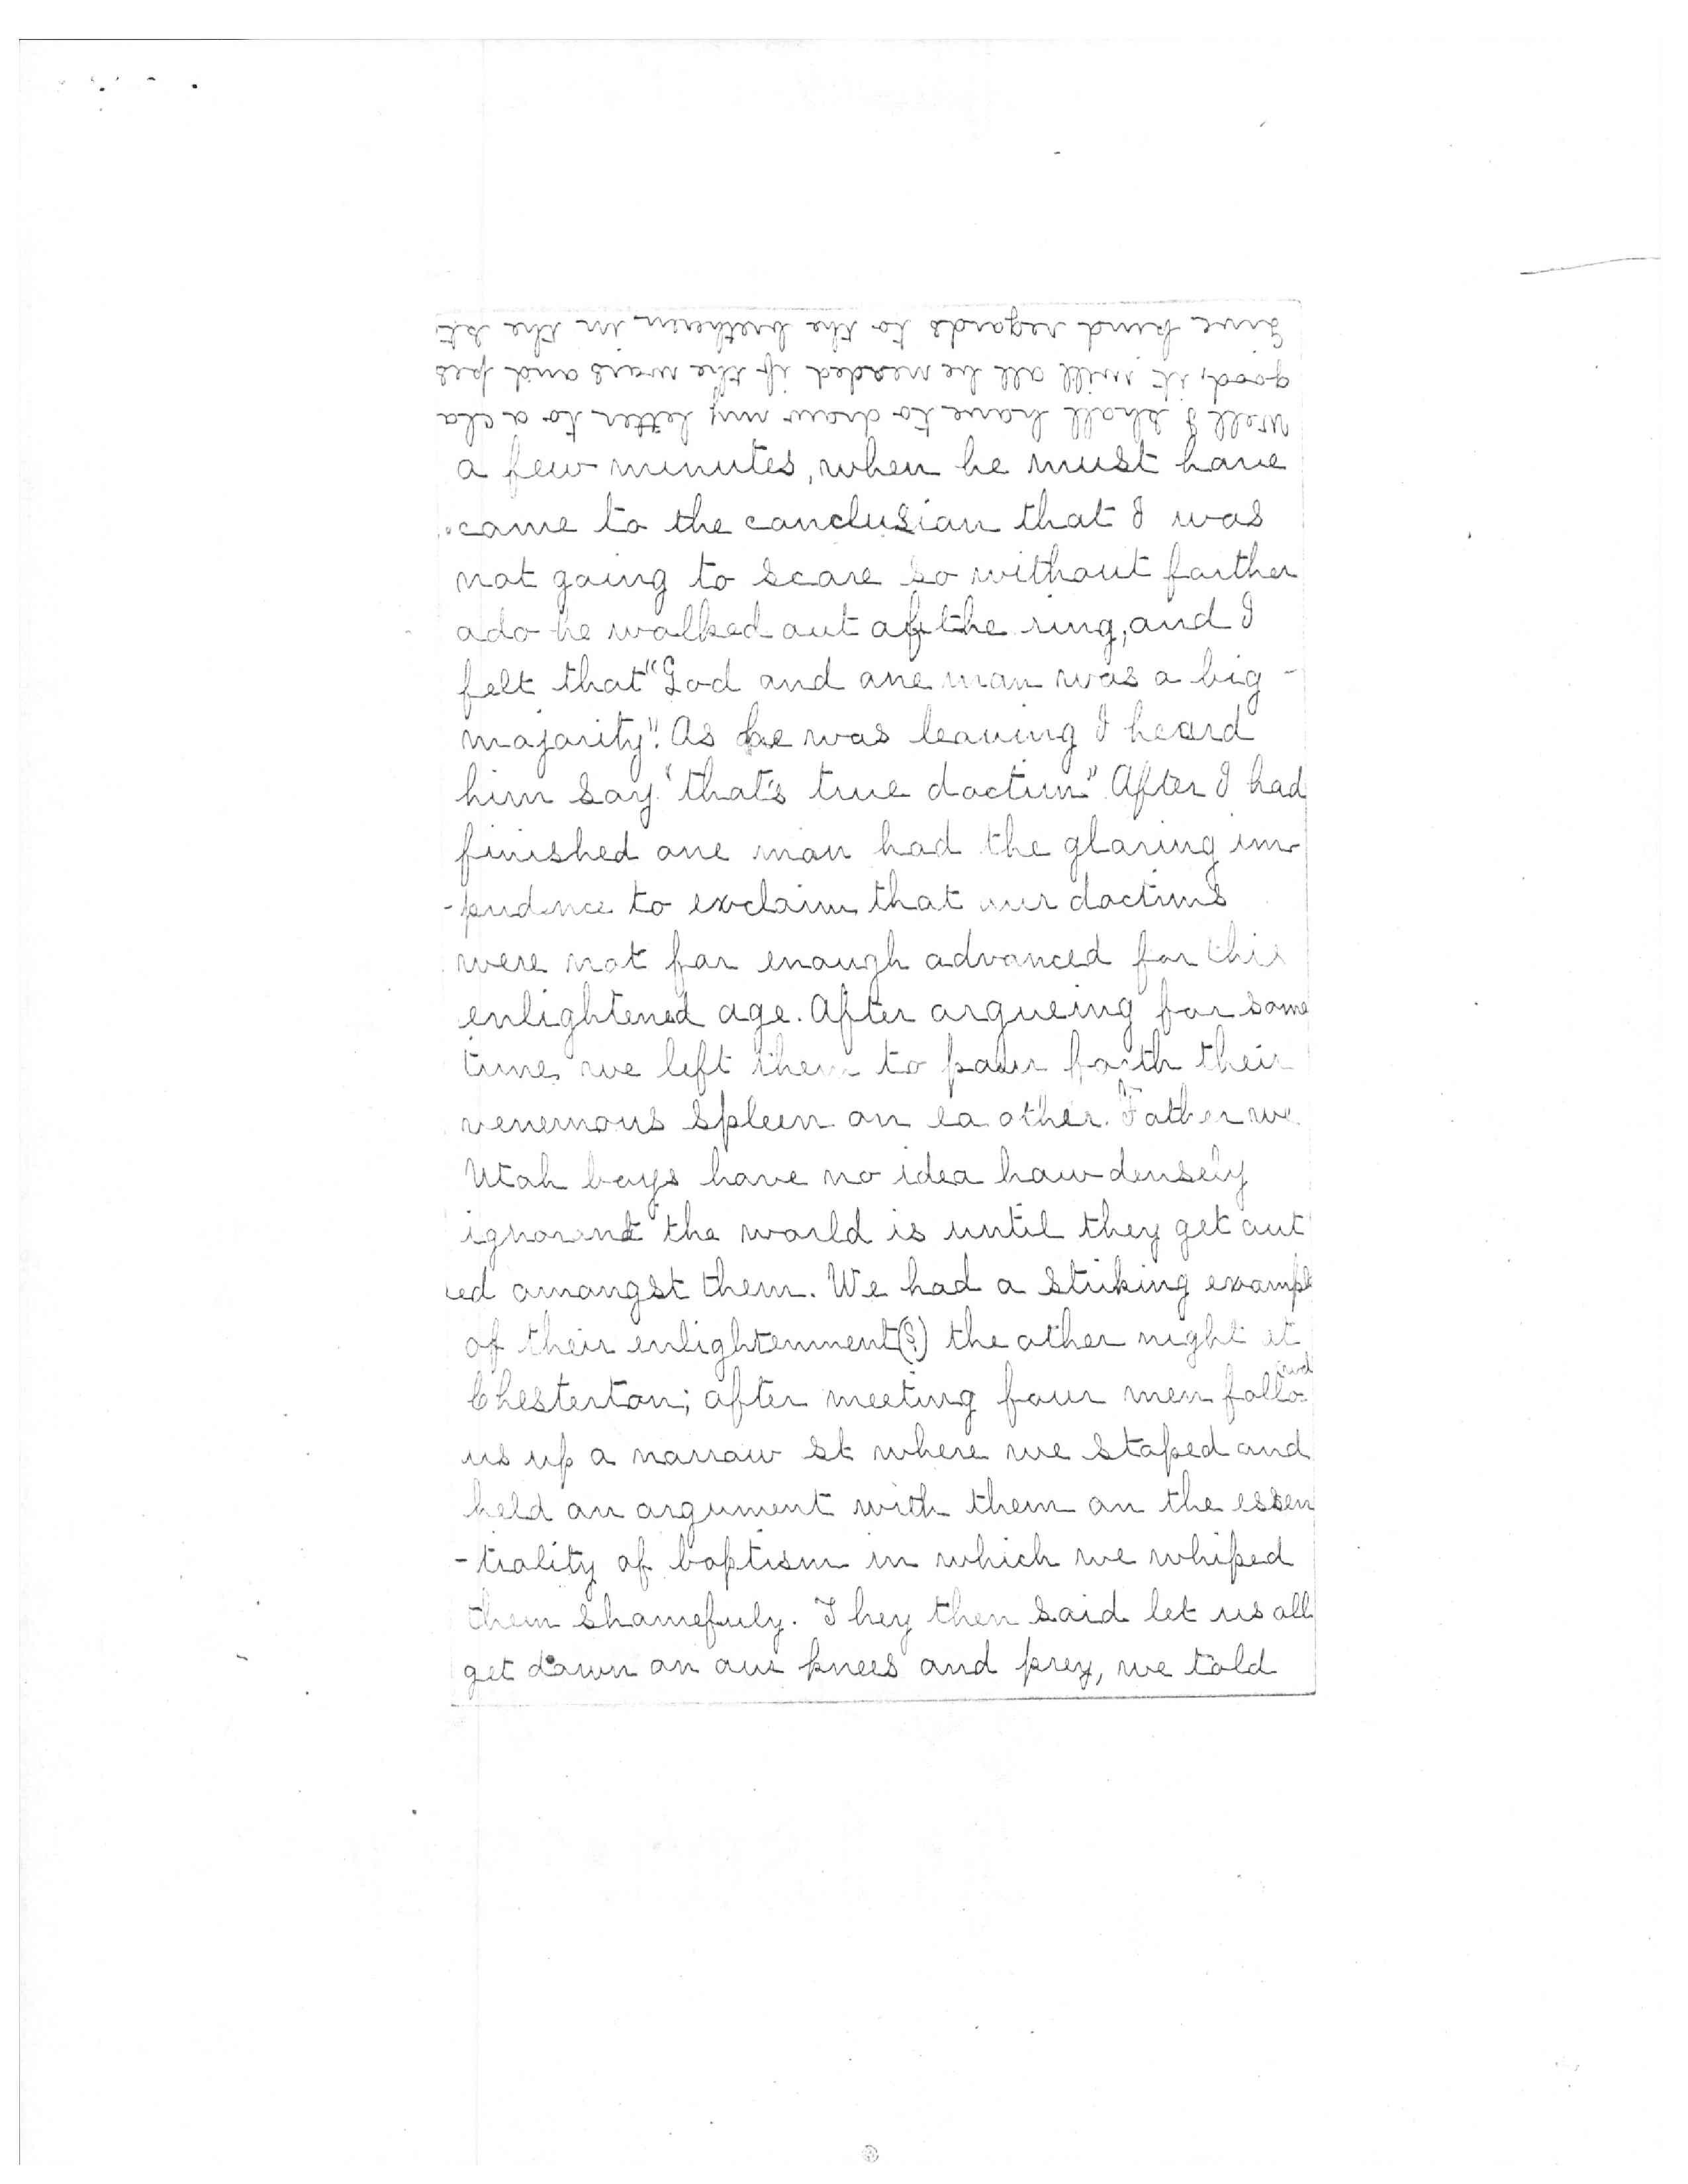 Well I shall have to draw my letter to a clo
good, it will all be needed if the wars and pes
Give kind regards to the bretheren in the st.
a few minutes, when he must have
came to the conclusion that I was
not going to scare so without farther
ado he walked out of the ring, and I
felt that "God and one man was a big
majority". As he was leaving I heard
him say "that's true doctrin." After I had
finished one man had the glaring im-
-pudence to exclaim that our doctrins
were not far enough advanced for this
enlightened age. After argueing for some
time we left them to pour forth their
venemous spleen on ea other. Father we
Utah boys have no idea how densely
ignorant the world is until they get out
ed amongst them. We had a striking exampl
of their enlightenment(?) the other night at
Chesterton; after meeting four men follo
wed
us up a narrow st where we stoped and
held an argument with them on the essen
-tiality of baptism in which we whiped
them shamefuly. They then said let us all
get down on our knees and prey, we told